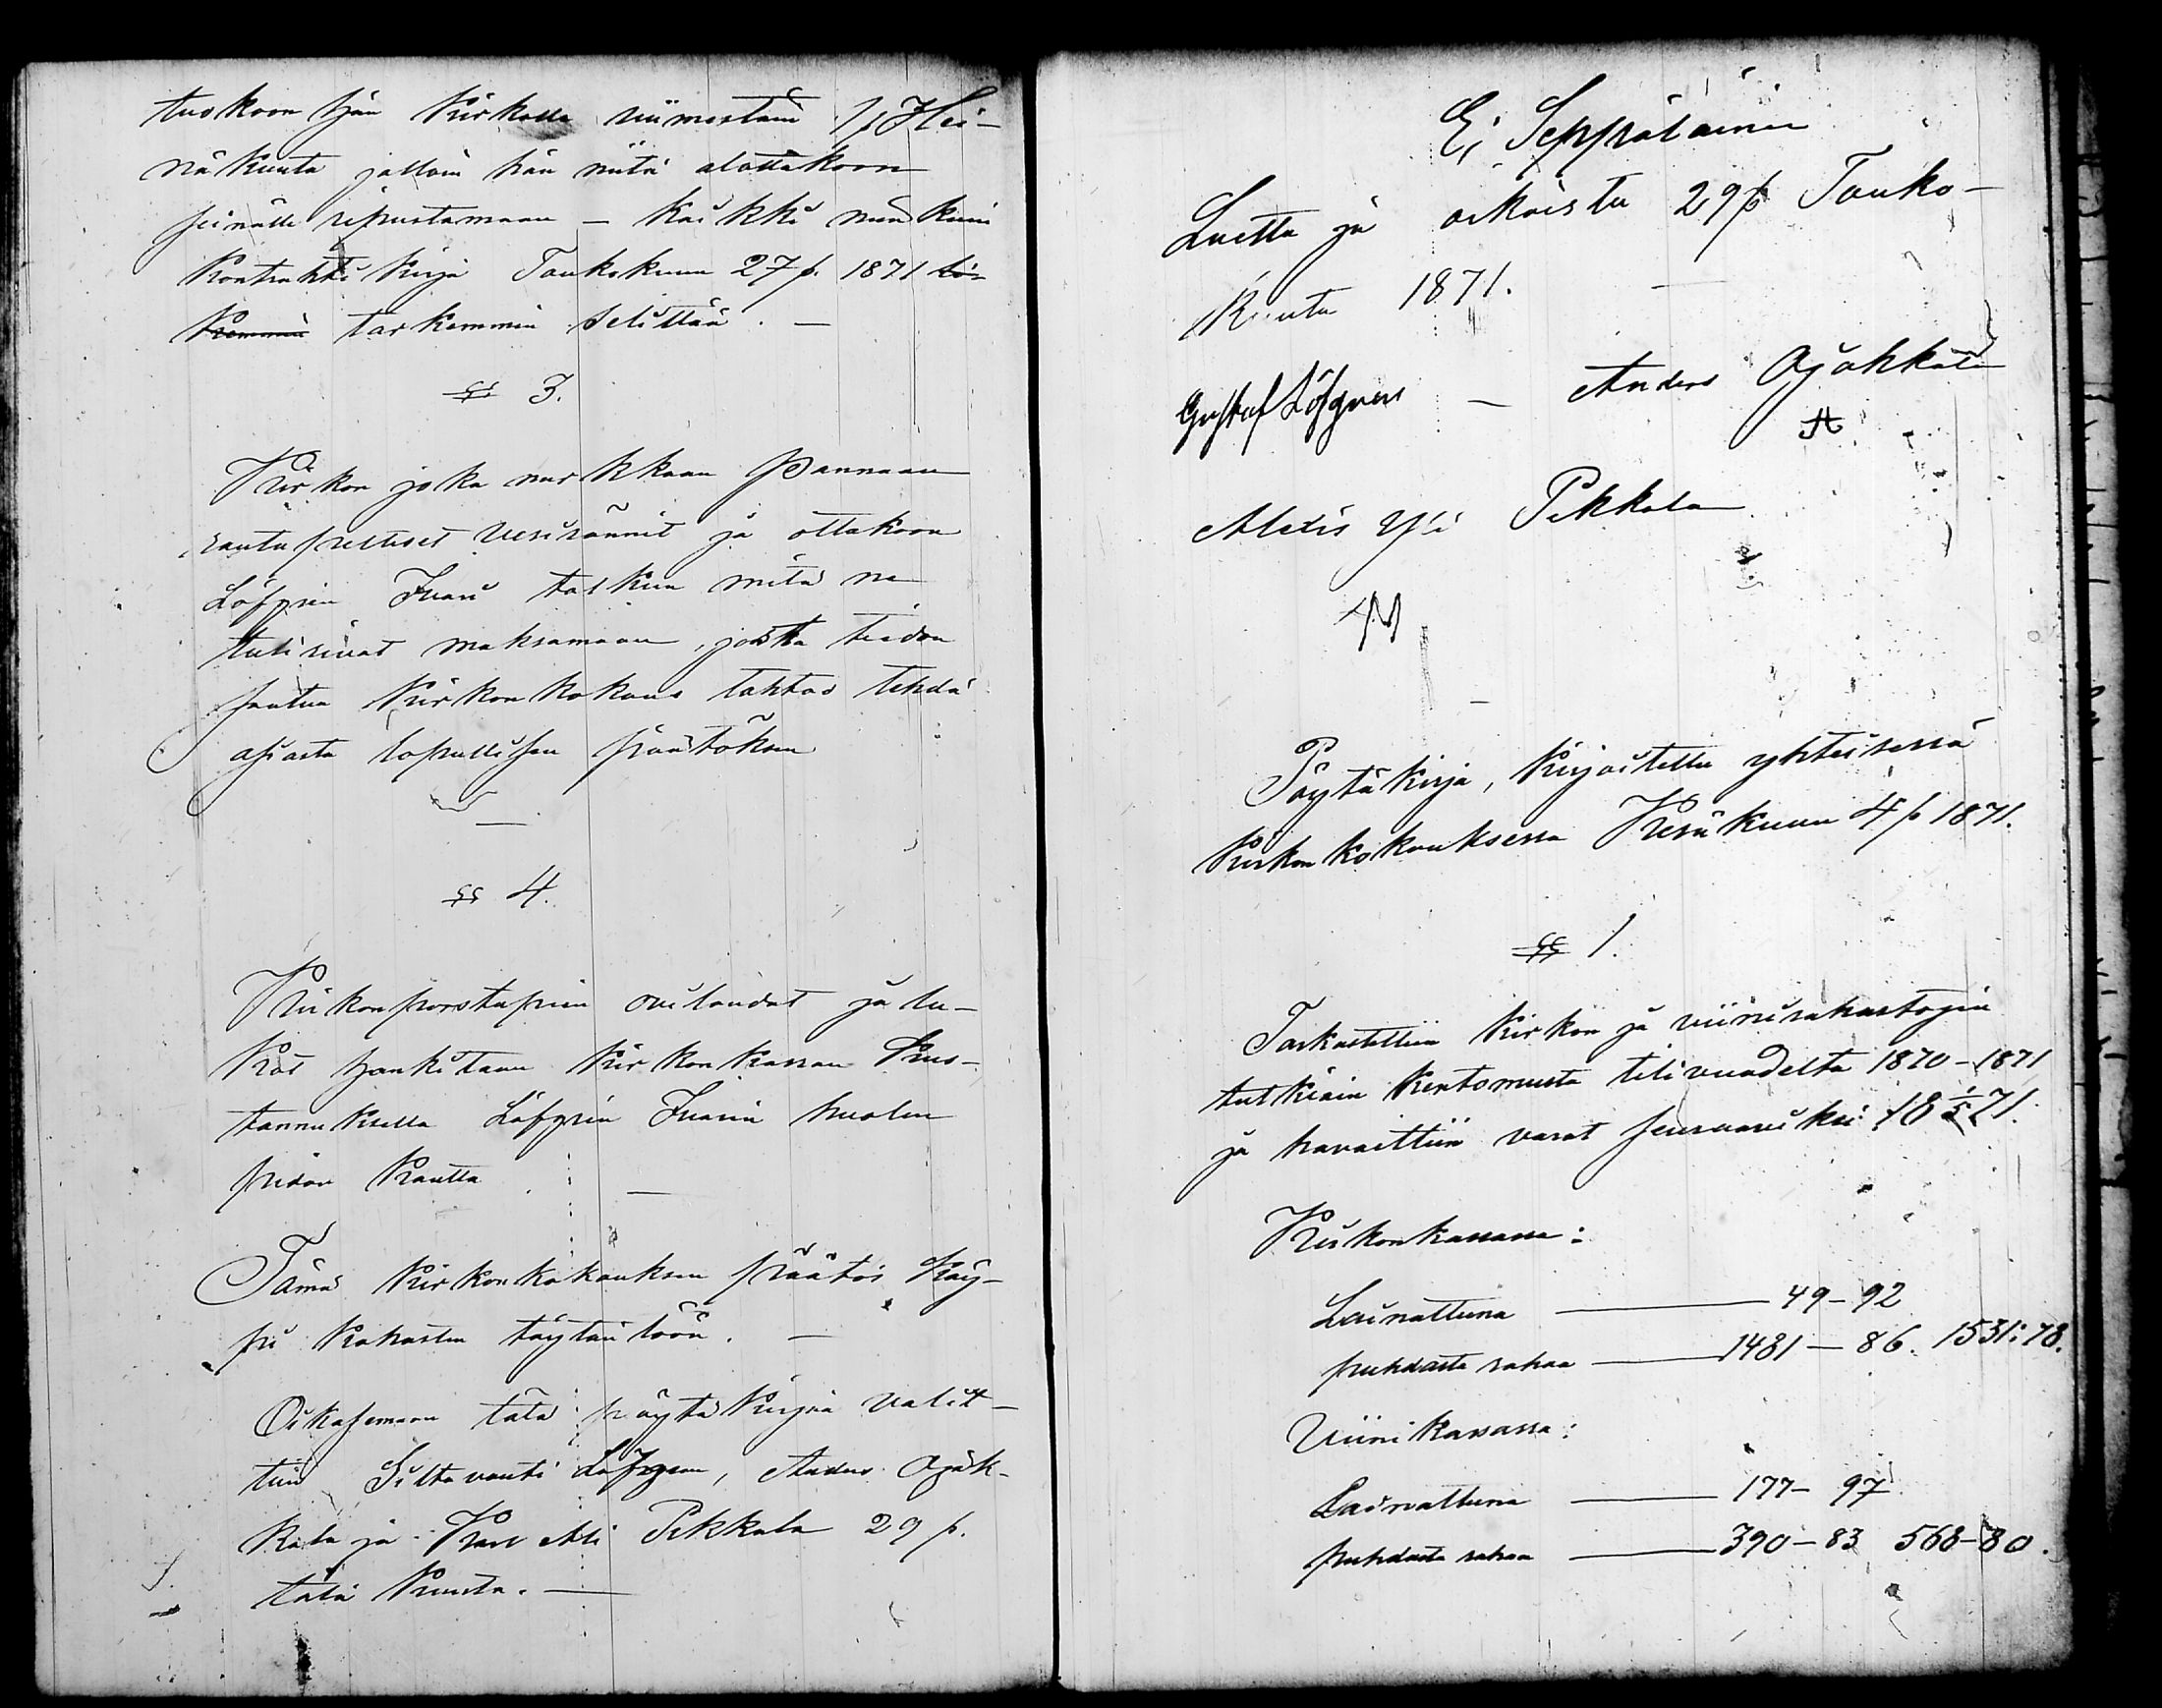 tuokoon hän Kirkolle viimestäin 1 p Hei-
näkuuta jolloin hän niitä alottakoon
seinälle ripustamaan — Kaikki niinkuin
Kontrahti Kirja Toukokuun 27 p. 1871
tarkemmin selittää. —
§§ 3.
Kirkon joka nurkkaan Pannaan
rautapeltiset vesirännit ja ottakoon
Löfgrin Iivari tarkan mitä ne
tulisivat maksamaan, jonka tiedon
saatua Kirkonkokous tahtoo tehdä
asiasta lopullisen päätöksen
—
§§ 4.
Kirkonporstupiin ovilaudat ja lu-
kot hankitaan Kirkonkassan Kus-
tannuksella Löfgrin Iivarin huolen
pidon Kautta —
Tämä Kirkonkokouksen päätös Käy-
pi kohastin täytäntöön. —
Oikasemaan tätä pöytäkirjaa valit-
tiin Siltavouti Löfgren, Anders Ojäk-
kälä ja Karl Pekkala 29 p.
tätä Kuuta. —
Ej Seppäläinen
Luettu ja oikaistu 29 p Touko-
Kuuta 1871. —
Gustaf Löfgren — Anders Ojahkälä
Alexis Yli Pekkala
—
Pöytäkirja, Kirjoitettu yhteisessä
Kirkonkokouksessa Kesäkuun 4 p 1871.
§§ 1.
Tarkastettiin Kirkon ja viinirahastojen
tutkiain Kertomusta tilivuodelta 1870-1871
ja havaittiin varat seuraaviksi 18 1/5 71.
Kirkonkassassa:
Lainattuna — 49-92
puhdasta rahaa — 1481-86. 1531:78.
Viinikassassa:
Lainattuna — 177-97
puhdasta rahaa — 390-83 568-80.